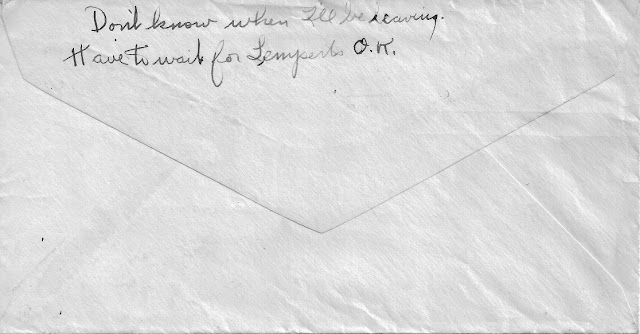 Don't know when I'll be leaving.
Have to wait for Lemperts O.K.